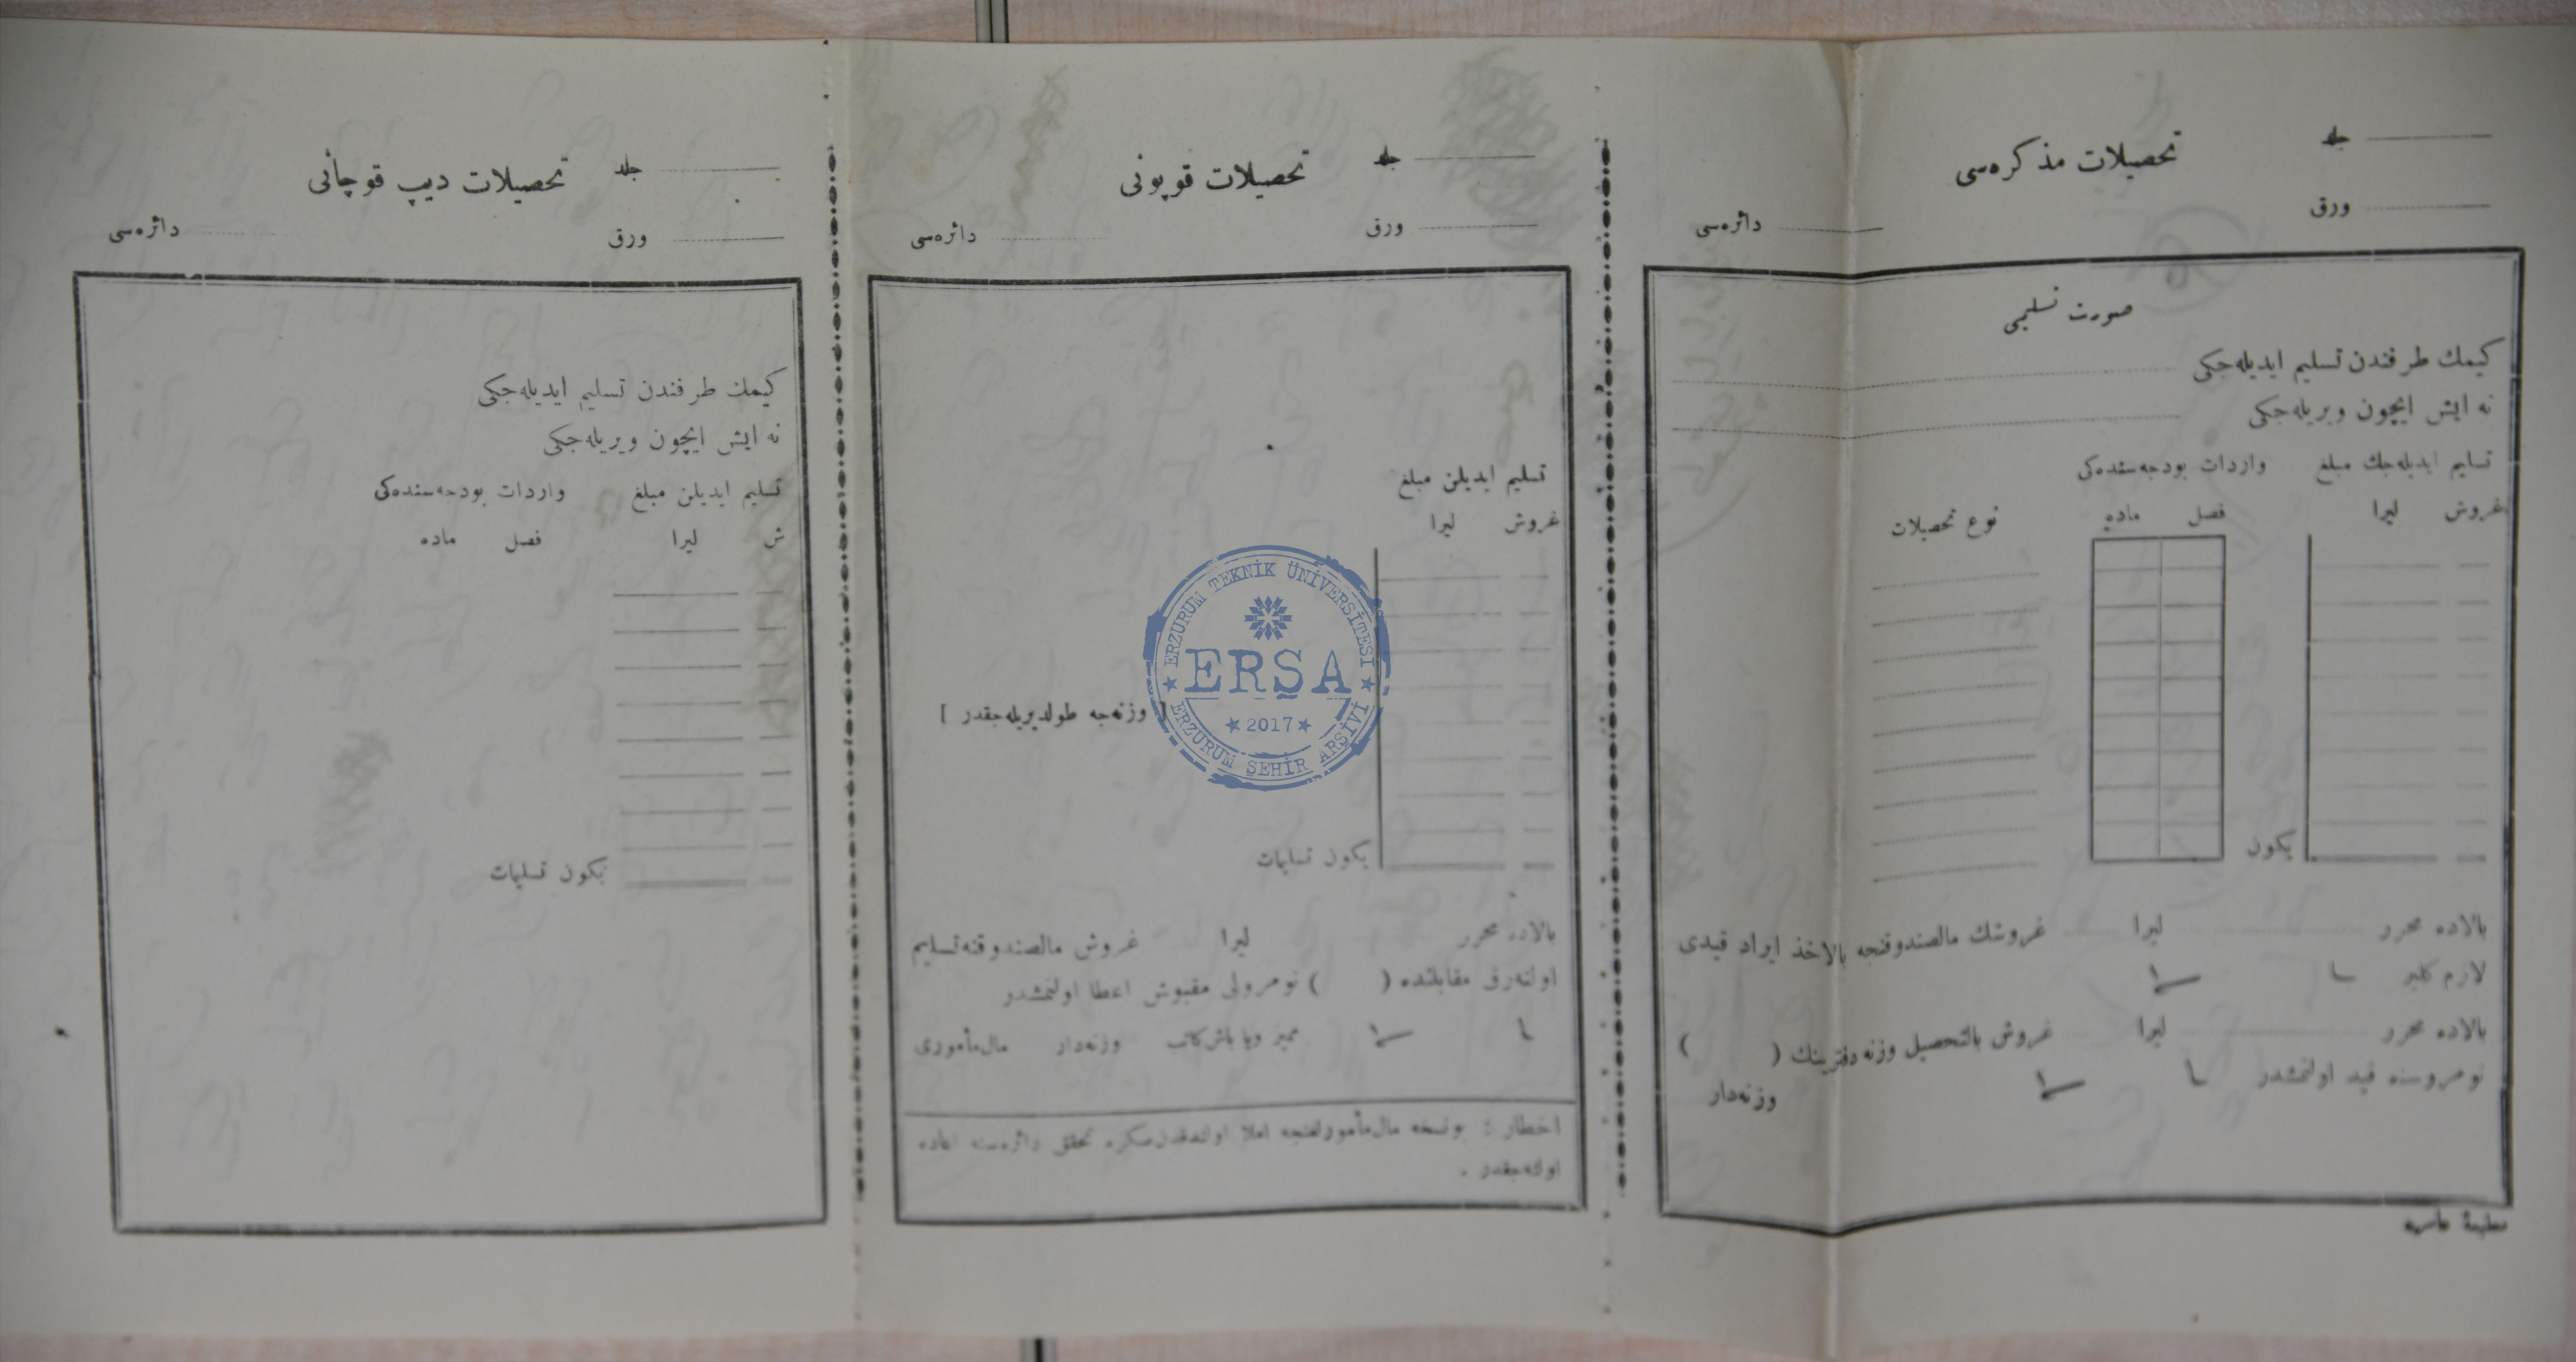 جلد
تحصیلات مذکره‌سی
ورق
دائره‌سی
صورت تسلیمی
کیمك طرفندن تسلیم ایدیله‌جکی
نه ایش ایچون ویریله‌جکی
تسلیم ایدیله‌جك مبلغ واردات بودجه‌سنده‌کی
غروش لیرا فصل ماده نوع تحصیلات
یکون
بالاده محرر لیرا غروشك مالصندوقنجه بالاخذ ایراد قیدی
لازم کلیر
بالاده محرر لیرا غروش بالتحصیل وزنه دفترینك ( )
نومروسنه قید اولنمشدر
وزنه‌دار
مطبعهٔ عامره
جلد
تحصیلات قوپونی
ورق
دائره‌سی
تسلیم ایدیلن مبلغ
غروش لیرا
[ وزنه‌جه طولدیریله‌جقدر ]
یکون تسلیمات
بالاده محرر لیرا غروش مالصندوقنه تسلیم
اولنه‌رق مقابلنده ( ) نومرولی مقبوض اعطا اولنمشدر
ممیز ویا باش کاتب وزنه‌دار مال‌مأموری
اخطار : بونسخه مال‌مأمورلغنجه املا اولندقدن‌صکره تحقق دائره‌سنه اعاده
اولنه‌جقدر .
جلد
تحصیلات دیپ قوچانی
ورق
دائره‌سی
کیمك طرفندن تسلیم ایدیله‌جکی
نه ایش ایچون ویریله‌جکی
تسلیم ایدیلن مبلغ واردات بودجه‌سنده‌کی
ش لیرا فصل ماده
یکون تسلیمات
ERZURUM TEKNİK ÜNİVERSİTESİ
ERŞA
2017
ERZURUM ŞEHİR ARŞİVİ